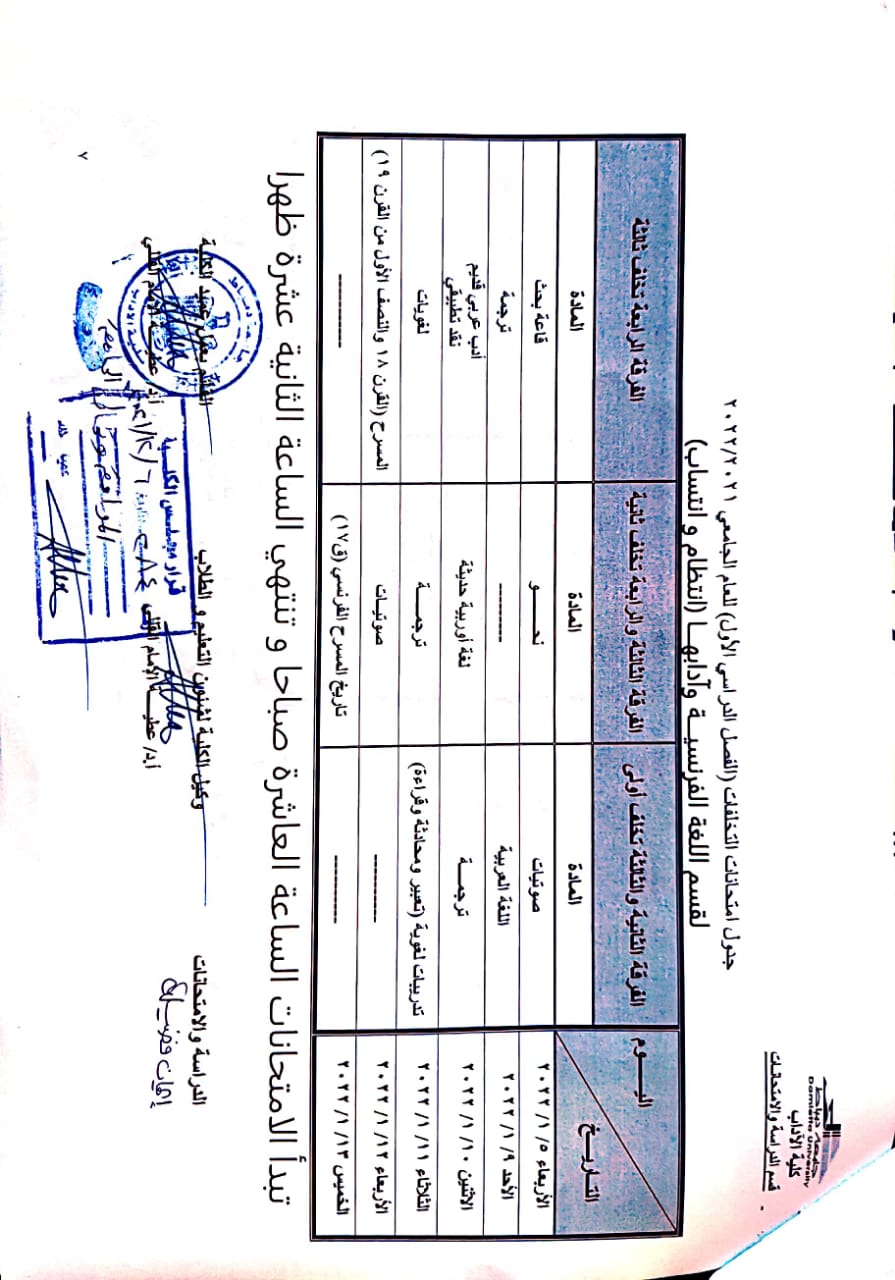 جامعة دمياط
Damietta University
كلية الآداب
قسم الدراسة والامتحانات
جدول امتحانات التخلفات (الفصل الدراسي الأول) للعام الجامعي ٢٠٢٢/٢٠٢١
لقسم اللغة الفرنسية وآدابها (انتظام و انتساب)
اليوم التاريخ الفرقة الثانية والثالثة تخلف أولى الفرقة الثالثة والرابعة تخلف ثانية الفرقة الرابعة تخلف ثالثة
المادة المادة المادة
الأربعاء ٢٠٢٢/١/٥ صوتيات نحو قاعة بحث
الأحد ٢٠٢٢/١/٩ اللغة العربية ------- ترجمة
الاثنين ٢٠٢٢/١/١٠ ترجمة لغة أوربية حديثة أدب عربي قديم
نقد تطبيقي
الثلاثاء ٢٠٢٢/١/١١ تدريبات لغوية (تعبير ومحادثة وقراءة) ترجمة لغويات
الأربعاء ٢٠٢٢/١/١٢ -------- صوتيات المسرح (القرن ١٨ والنصف الأول من القرن ١٩)
الخميس ٢٠٢٢/١/١٣ -------- تاريخ المسرح الفرنسي (ق١٧) --------
تبدأ الامتحانات الساعة العاشرة صباحا و تنتهي الساعة الثانية عشرة ظهرا
الدراسة والامتحانات وكيل الكلية لشئون التعليم و الطلاب القائم بعمل عميد الكلية
أ.د/ عطية الإمام القللي
قرار مجلس الكلية
٢